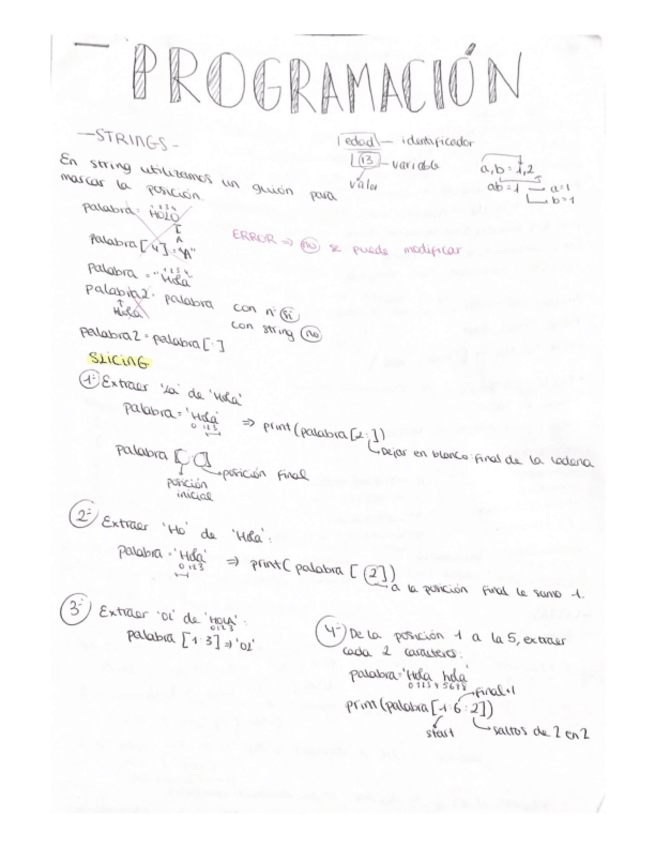 — PROGRAMACIÓN
— STRINGS -
edad — identificador
13 — variable
valor
a, b = 1, 2
ab = 1 — a=1
b=1
En string utilizamos un guión para
marcar la posición.
palabra = HOLO
A
Palabra[4] = "A"
ERROR => no se puede modificar
palabra = "Hola
palabra2 = palabra
Hola
con nº si
con string no
palabra2 = palabra[:]
SLICING
1- Extraer 'la' de 'Hola'
palabra = 'Hola' => print(palabra[2:])
0 1 2 3
Dejar en blanco: final de la cadena
palabra [ : ]
posición final
posición
inicial
2- Extraer 'Ho' de 'Hola':
palabra = 'Hola' => print( palabra [ :2])
0 1 2 3
a la posición final le sumo 1.
3- Extraer 'Ol' de 'HOLA':
0 1 2 3
palabra [1:3] => 'Ol'
4- De la posición 1 a la 5, extraer
cada 2 caracteres:
palabra = 'Hola hola
0 1 2 3 4 5 6 7 8
final+1
print(palabra[1:6:2])
start
saltos de 2 en 2